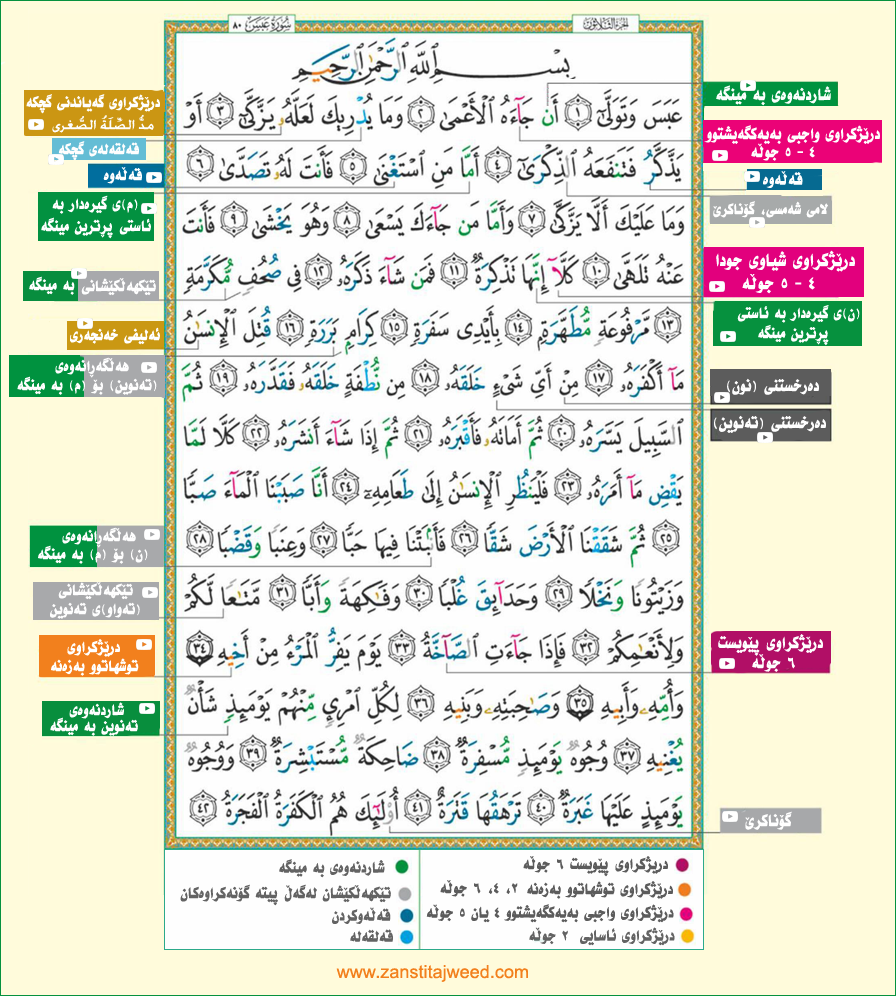 سُورَةُ عَبَسَ ٨٠
الجزء الثلاثون
بِسْمِ اللَّهِ الرَّحْمَٰنِ الرَّحِيمِ
عَبَسَ وَتَوَلَّىٰٓ ١ أَن جَآءَهُ الْأَعْمَىٰ ٢ وَمَا يُدْرِيكَ لَعَلَّهُۥ يَزَّكَّىٰٓ ٣ أَوْ
يَذَّكَّرُ فَتَنفَعَهُ الذِّكْرَىٰٓ ٤ أَمَّا مَنِ اسْتَغْنَىٰ ٥ فَأَنتَ لَهُۥ تَصَدَّىٰ ٦
وَمَا عَلَيْكَ أَلَّا يَزَّكَّىٰ ٧ وَأَمَّا مَن جَآءَكَ يَسْعَىٰ ٨ وَهُوَ يَخْشَىٰ ٩ فَأَنتَ
عَنْهُ تَلَهَّىٰ ١٠ كَلَّآ إِنَّهَا تَذْكِرَةٌ ١١ فَمَن شَآءَ ذَكَرَهُۥ ١٢ فِي صُحُفٍ مُّكَرَّمَةٍ
١٣ مَّرْفُوعَةٍ مُّطَهَّرَةٍۭ ١٤ بِأَيْدِي سَفَرَةٍ ١٥ كِرَامٍۭ بَرَرَةٍ ١٦ قُتِلَ الْإِنسَٰنُ
مَآ أَكْفَرَهُۥ ١٧ مِنْ أَيِّ شَيْءٍ خَلَقَهُۥ ١٨ مِن نُّطْفَةٍ خَلَقَهُۥ فَقَدَّرَهُۥ ١٩ ثُمَّ
السَّبِيلَ يَسَّرَهُۥ ٢٠ ثُمَّ أَمَاتَهُۥ فَأَقْبَرَهُۥ ٢١ ثُمَّ إِذَا شَآءَ أَنشَرَهُۥ ٢٢ كَلَّا لَمَّا
يَقْضِ مَآ أَمَرَهُۥ ٢٣ فَلْيَنظُرِ الْإِنسَٰنُ إِلَىٰ طَعَامِهِۦٓ ٢٤ أَنَّا صَبَبْنَا الْمَآءَ صَبًّا
٢٥ ثُمَّ شَقَقْنَا الْأَرْضَ شَقًّا ٢٦ فَأَنۢبَتْنَا فِيهَا حَبًّا ٢٧ وَعِنَبًا وَقَضْبًا ٢٨
وَزَيْتُونًا وَنَخْلًا ٢٩ وَحَدَآئِقَ غُلْبًا ٣٠ وَفَٰكِهَةً وَأَبًّا ٣١ مَّتَٰعًا لَّكُمْ
وَلِأَنْعَٰمِكُمْ ٣٢ فَإِذَا جَآءَتِ الصَّآخَّةُ ٣٣ يَوْمَ يَفِرُّ الْمَرْءُ مِنْ أَخِيهِ ٣٤
وَأُمِّهِۦ وَأَبِيهِ ٣٥ وَصَٰحِبَتِهِۦ وَبَنِيهِ ٣٦ لِكُلِّ امْرِئٍ مِّنْهُمْ يَوْمَئِذٍ شَأْنٌ
يُغْنِيهِ ٣٧ وُجُوهٌ يَوْمَئِذٍ مُّسْفِرَةٌ ٣٨ ضَاحِكَةٌ مُّسْتَبْشِرَةٌ ٣٩ وَوُجُوهٌ
يَوْمَئِذٍ عَلَيْهَا غَبَرَةٌ ٤٠ تَرْهَقُهَا قَتَرَةٌ ٤١ أُولَٰٓئِكَ هُمُ الْكَفَرَةُ الْفَجَرَةُ ٤٢
شاردنەوەی بە مینگە
درێژکراوی واجبی بەیەکگەیشتوو
٤ - ٥ جوڵە
قەڵەوە
لامی شەمسی، گۆناکرێ
درێژکراوی شیاوی جودا
٤ - ٥ جوڵە
(ن)ی گیرەدار بە ئاستی
پڕترین مینگە
دەرخستنی (نون)
دەرخستنی (تەنوین)
درێژکراوی پێویست
٦ جوڵە
گۆناکرێ
درێژکراوی گەیاندنی گچکە
مدُّ الصِّلَةُ الصُّغرى
قەلقەلەی گچکە
قەڵەوە
(م)ی گیرەدار بە
ئاستی پڕترین مینگە
تێکهەڵکێشانی بە مینگە
ئەلیفی خەنجەری
هەڵگەڕانەوەی
(تەنوین) بۆ (م) بە مینگە
هەڵگەڕانەوەی
(ن) بۆ (م) بە مینگە
تێکهەڵکێشانی
(تەواو)ی تەنوین
درێژکراوی
توشهاتوو بەزەنە
شاردنەوەی
تەنوین بە مینگە
دریژکراوی پێویست ٦ جوڵە
درێژکراوی توشهاتوو بەزەنە ٢، ٤، ٦ جوڵە
درێژکراوی واجبی بەیەکگەیشتوو ٤ یان ٥ جوڵە
درێژکراوی ئاسایی ٢ جوڵە
شاردنەوەی بە مینگە
تێکهەڵکێشان لەگەڵ پیتە گۆنەکراوەکان
قەڵەوکردن
قەلقەلە
www.zanstitajweed.com